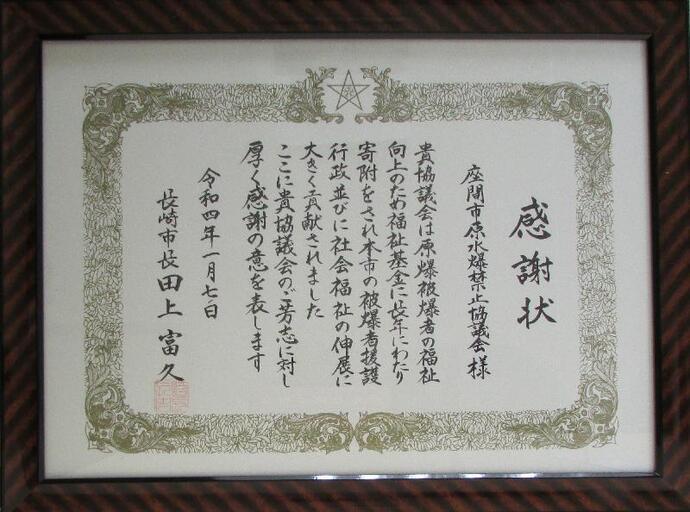 感謝状
座間市原水爆禁止協議会様
貴協議会は原爆被爆者の福祉
向上のため福祉基金に長年にわたり
寄附をされ本市の被爆者援護
行政並びに社会福祉の伸展に
大きく貢献されました
ここに貴協議会のご芳志に対し
厚く感謝の意を表します
令和四年一月七日
長崎市長 田上富久